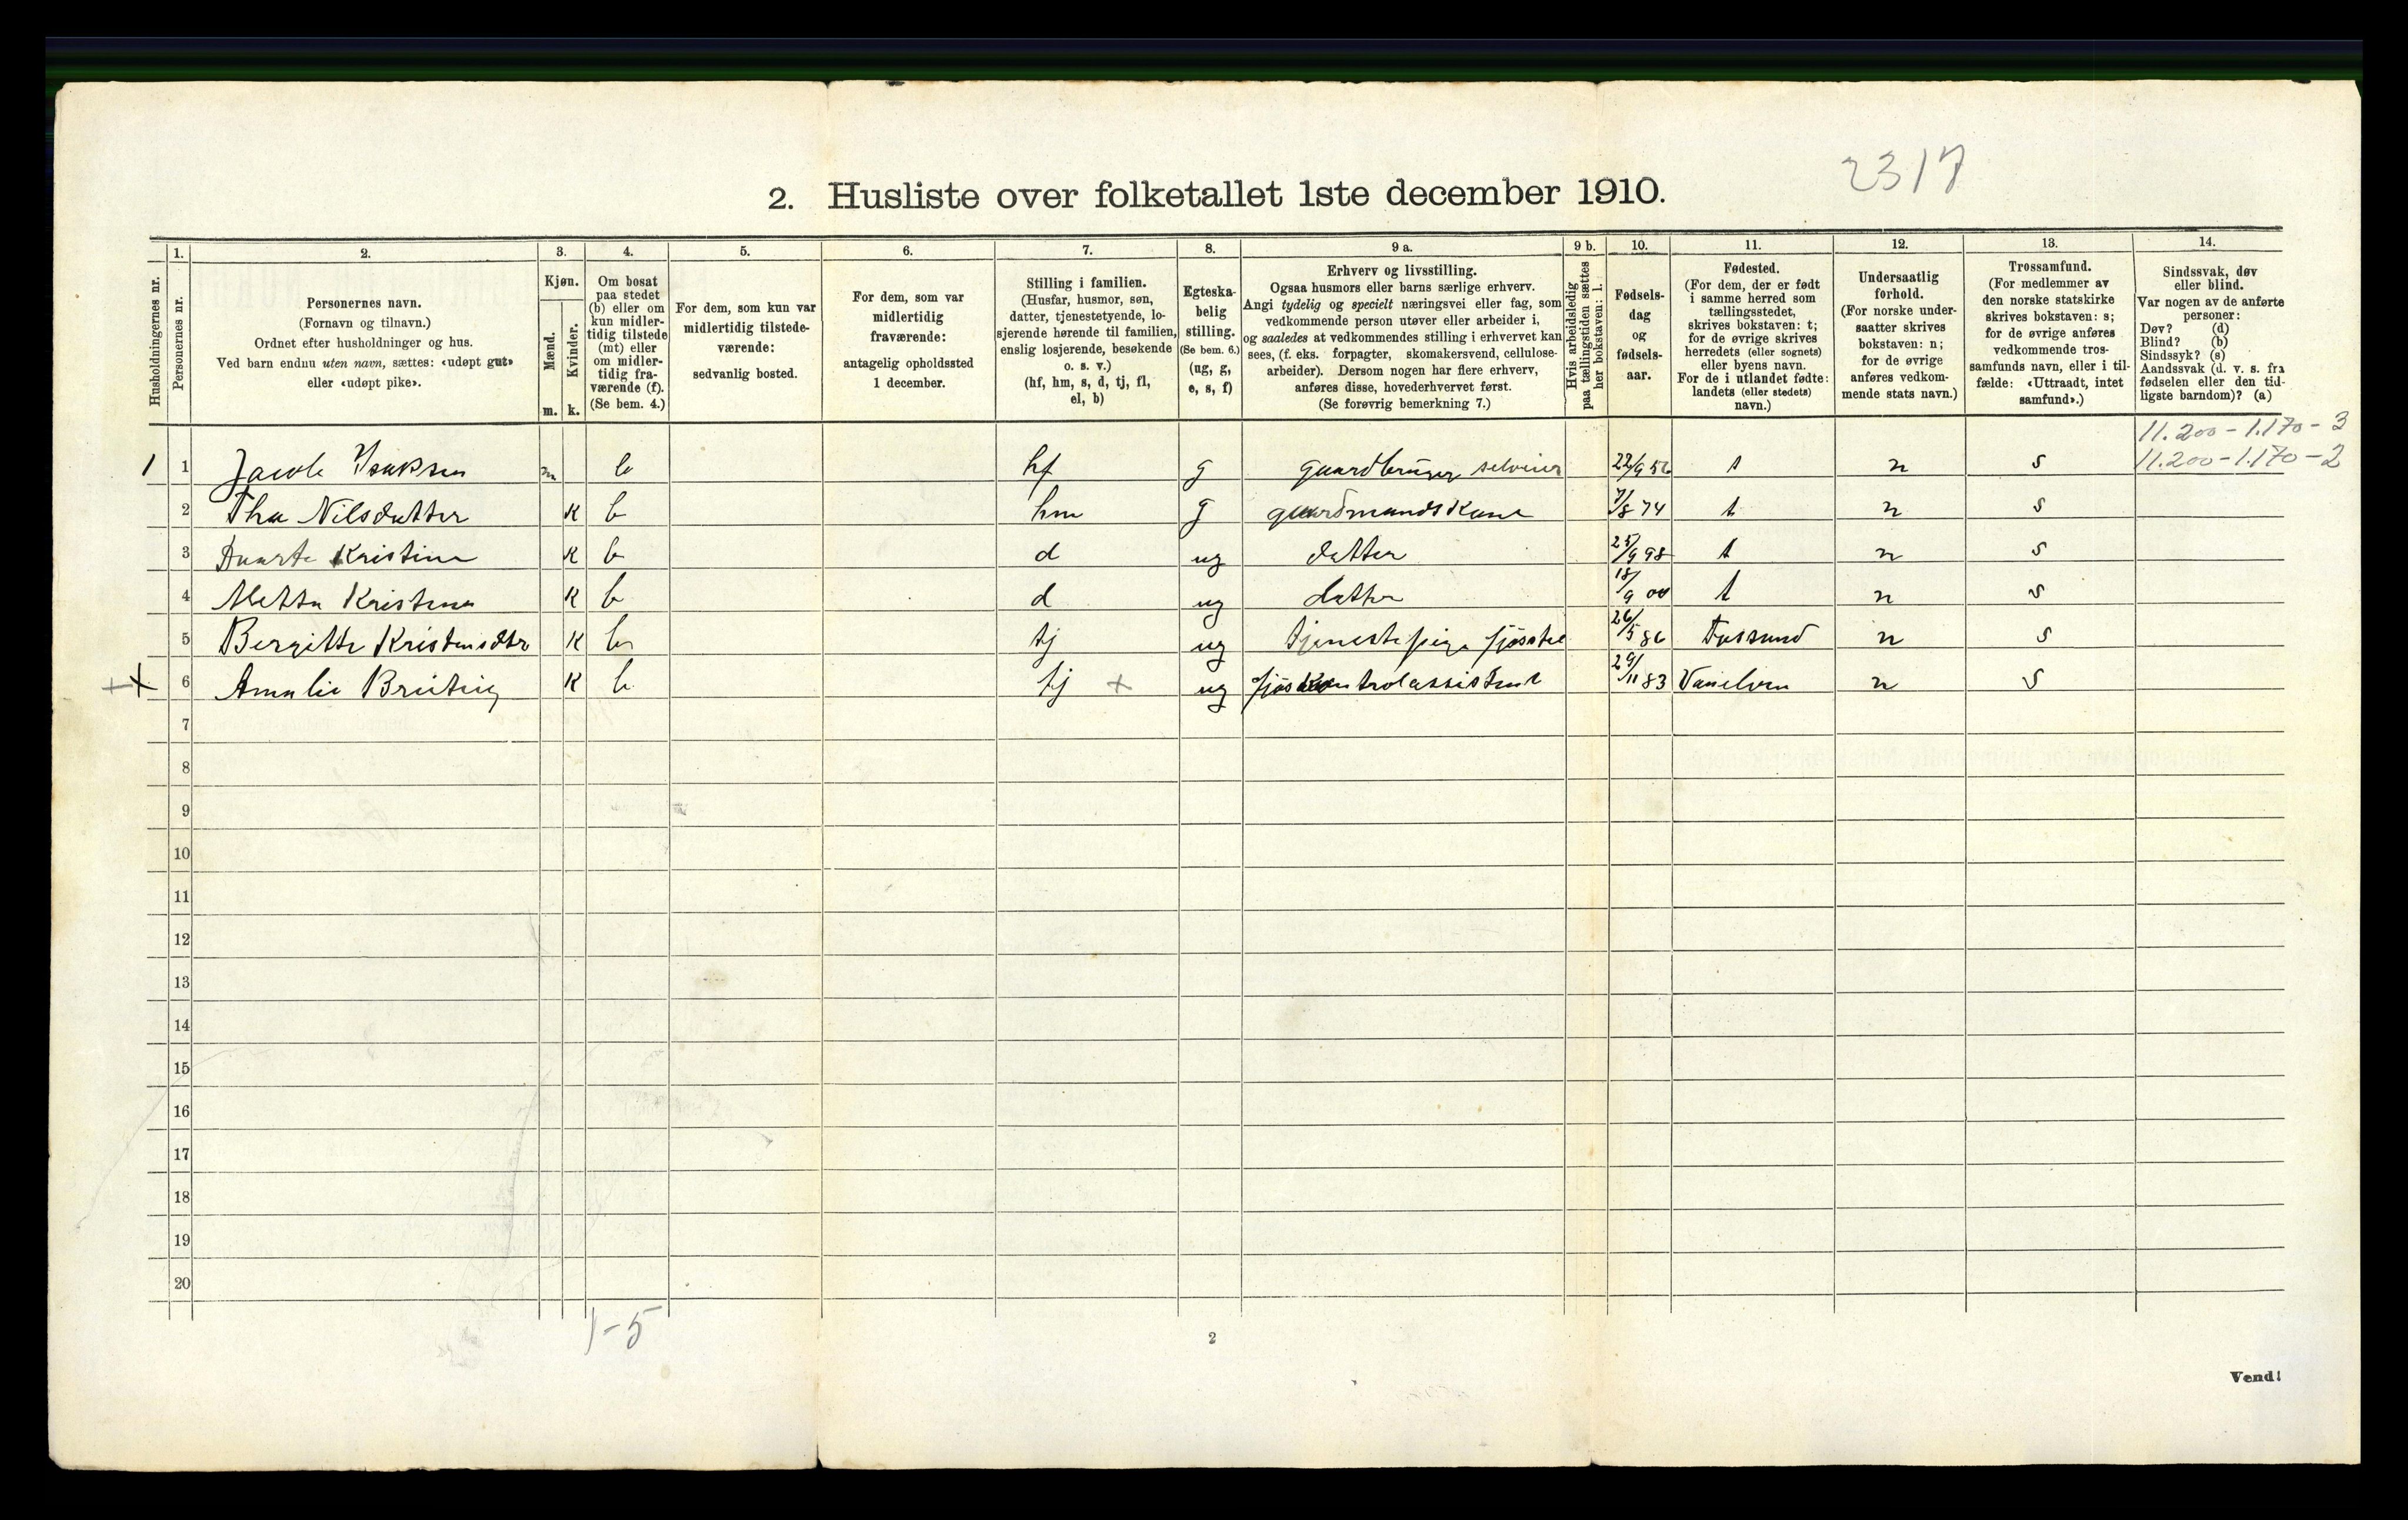 2317
2. Husliste over folketallet 1ste december 1910.
Husholdningernes nr.
1.
Personernes nr.
2.
Personernes navn.
(Fornavn og tilnavn.)
Ordnet efter husholdninger og hus.
Ved barn endnu uten navn, sættes: «udøpt gut»
eller «udøpt pike».
3.
Kjøn.
Mænd.
Kvinder.
m. k.
4.
Om bosat
paa stedet
(b) eller om
kun midler-
tidig tilstede
(mt) eller
om midler-
tidig fra-
værende (f).
(Se bem. 4.)
5.
For dem, som kun var
midlertidig tilstede-
værende:
sedvanlig bosted.
6.
For dem, som var
midlertidig
fraværende:
antagelig opholdssted
1 december.
7.
Stilling i familien.
(Husfar, husmor, søn,
datter, tjenestetyende, lo-
sjerende hørende til familien,
enslig losjerende, besøkende
o. s. v.)
(hf, hm, s, d, tj, fl,
el, b)
8.
Egteska-
belig
stilling.
(Se bem. 6.)
(ug, g,
e, s, f)
9 a.
Erhverv og livsstilling.
Ogsaa husmors eller barns særlige erhverv.
Angi tydelig og specielt næringsvei eller fag, som
vedkommende person utøver eller arbeider i,
og saaledes at vedkommendes stilling i erhvervet kan
sees, (f. eks. forpagter, skomakersvend, cellulose-
arbeider). Dersom nogen har flere erhverv,
anføres disse, hovederhvervet først.
(Se forøvrig bemerkning 7.)
9 b.
Hvis arbeidsledig
paa tællingstiden sættes
her bokstaven: l.
10.
Fødsels-
dag
og
fødsels-
aar.
11.
Fødested.
(For dem, der er født
i samme herred som
tællingsstedet,
skrives bokstaven: t;
for de øvrige skrives
herredets (eller sognets)
eller byens navn.
For de i utlandet fødte:
landets (eller stedets)
navn.)
12.
Undersaatlig
forhold.
(For norske under-
saatter skrives
bokstaven: n;
for de øvrige
anføres vedkom-
mende stats navn.)
13.
Trossamfund.
(For medlemmer av
den norske statskirke
skrives bokstaven: s;
for de øvrige anføres
vedkommende tros-
samfunds navn, eller i til-
fælde: «Uttraadt, intet
samfund».)
14.
Sindssvak, døv
eller blind.
Var nogen av de anførte
personer:
Døv? (d)
Blind? (b)
Sindssyk? (s)
Aandssvak (d. v. s. fra
fødselen eller den tid-
ligste barndom)? (a)
11.200-1.170-3
11.200-1.170-2
1 1 Jacob Isaksen m b hf g gaardbruger selveier 22/9 56 t n s
2 Thea Nilsdatter K b hm g gaardmandskone 7/8 74 t n s
3 Kristine K b d ug datter 25/9 98 t n s
4 Metta Kristine K b d ug datter 18/9 00 t n s
5 Bergitte Kristensdtr K b tj ug tjenestepige fjøsstel 26/5 86 Fossund n s
+ 6 Amalie K b tj + ug fjøskontrolassistent 29/11 83 Vanelven n s
7
8
9
10
11
12
13
14
15
16
17
18
19
20
1-5
2
Vend!